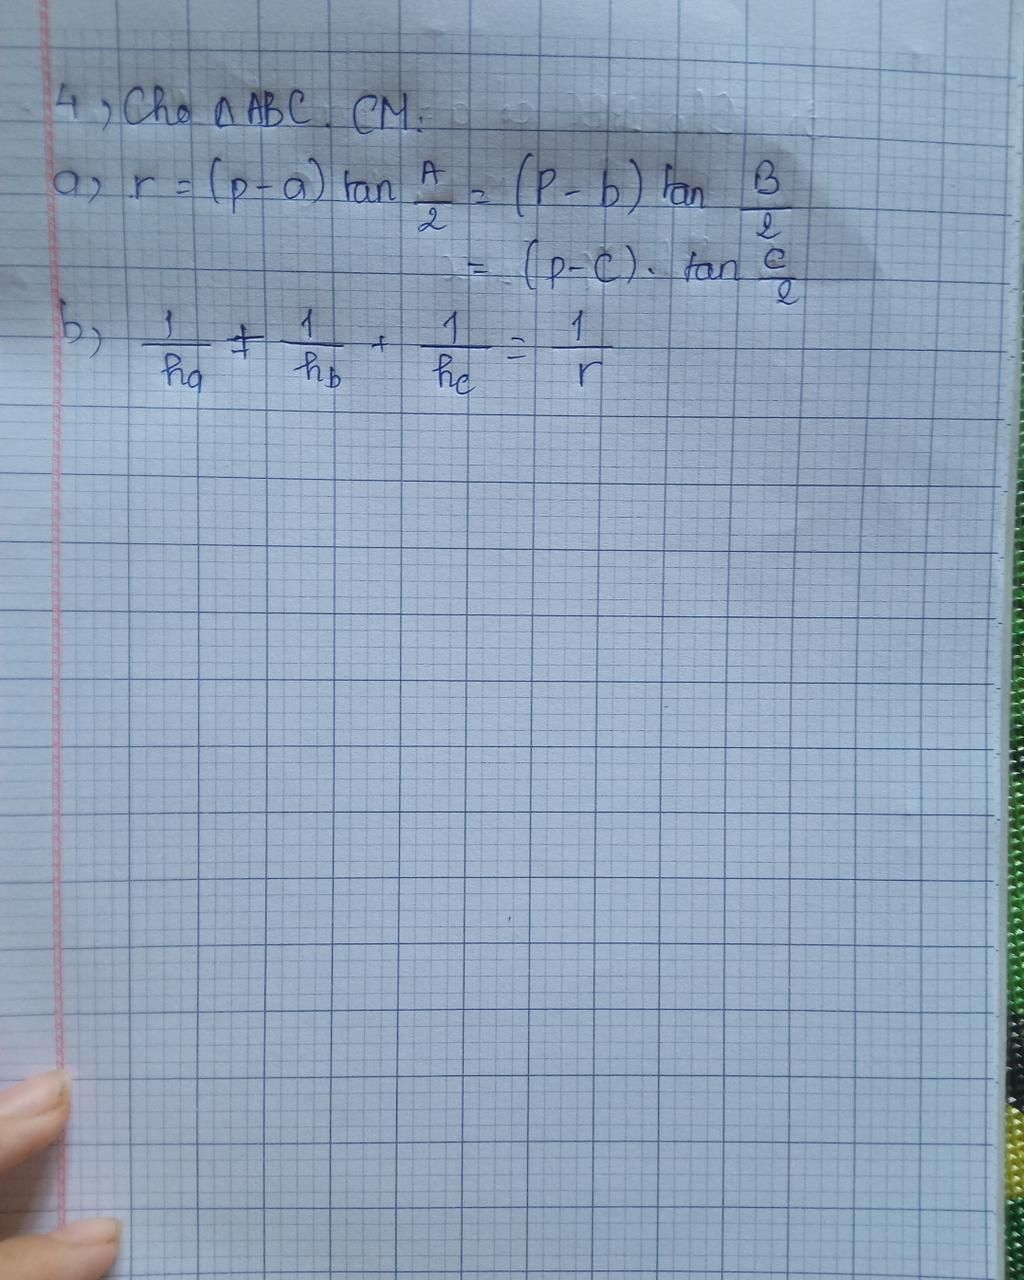 4, Cho Δ ABC. CM:
a, r = (p - a) tan A/2 = (P - b) tan B/2
= (p - C). tan C/2
b, 1/ha + 1/hb + 1/hc = 1/r